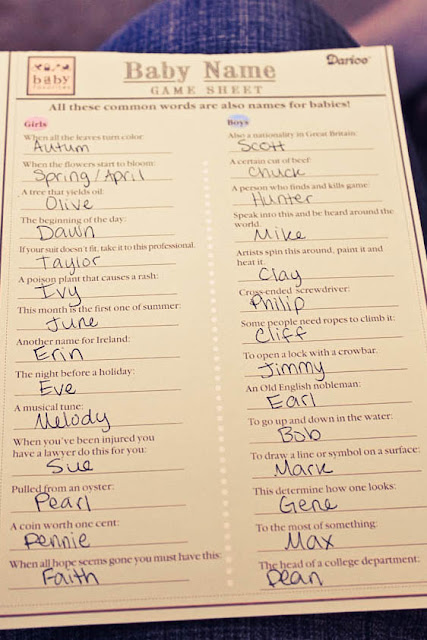 baby
favorites
Baby Name
GAME SHEET
Darice
All these common words are also names for babies!
Girls
When all the leaves turn color:
Autum
When the flowers start to bloom:
Spring/April
A tree that yields oil:
Olive
The beginning of the day:
Dawn
If your suit doesn't fit, take it to this professional.
Taylor
A poison plant that causes a rash:
Ivy
This month is the first one of summer:
June
Another name for Ireland:
Erin
The night before a holiday:
Eve
A musical tune:
Melody
When you've been injured you
have a lawyer do this for you:
Sue
Pulled from an oyster:
Pearl
A coin worth one cent:
Pennie
When all hope seems gone you must have this:
Faith
Boys
Also a nationality in Great Britain:
Scott
A certain cut of beef:
Chuck
A person who finds and kills game:
Hunter
Speak into this and be heard around the
world.
Mike
Artists spin this around, paint it and
heat it.
Clay
Cross-ended screwdriver:
Philip
Some people need ropes to climb it:
Cliff
To open a lock with a crowbar.
Jimmy
An Old English nobleman:
Earl
To go up and down in the water:
Bob
To draw a line or symbol on a surface:
Mark
This determine how one looks:
Gene
To the most of something:
Max
The head of a college department:
Dean